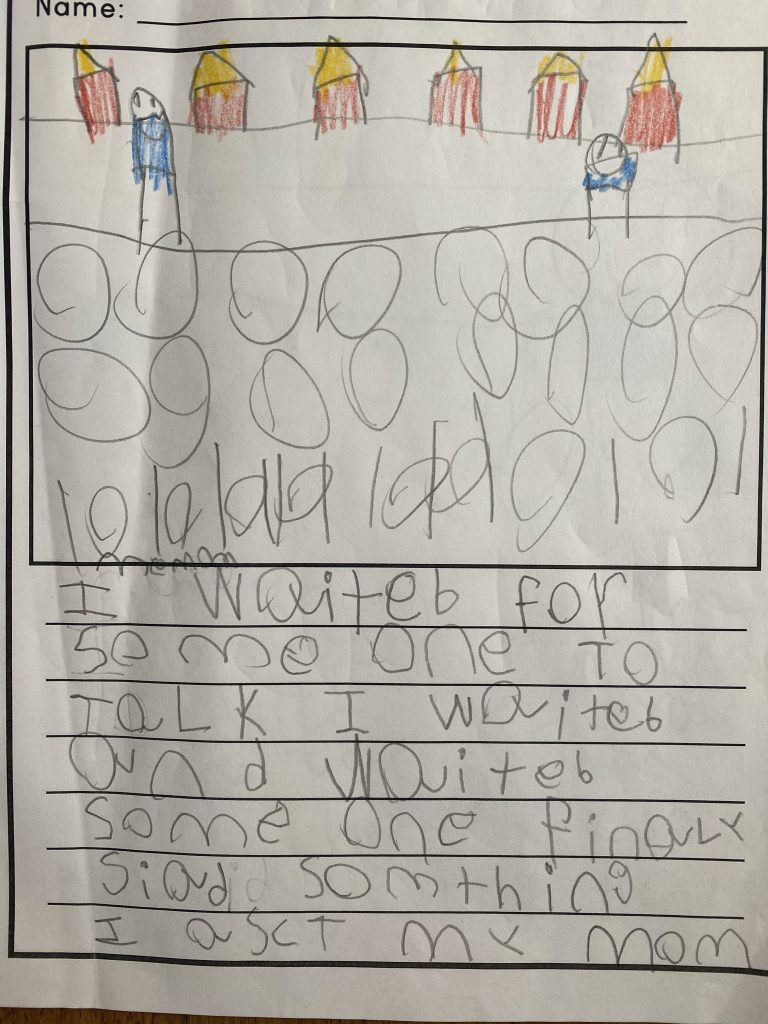 Name:
I waiteb for
some one To
TaLk I waiteb
and waiteb
some one finaLY
siad somthing
I asct my mom